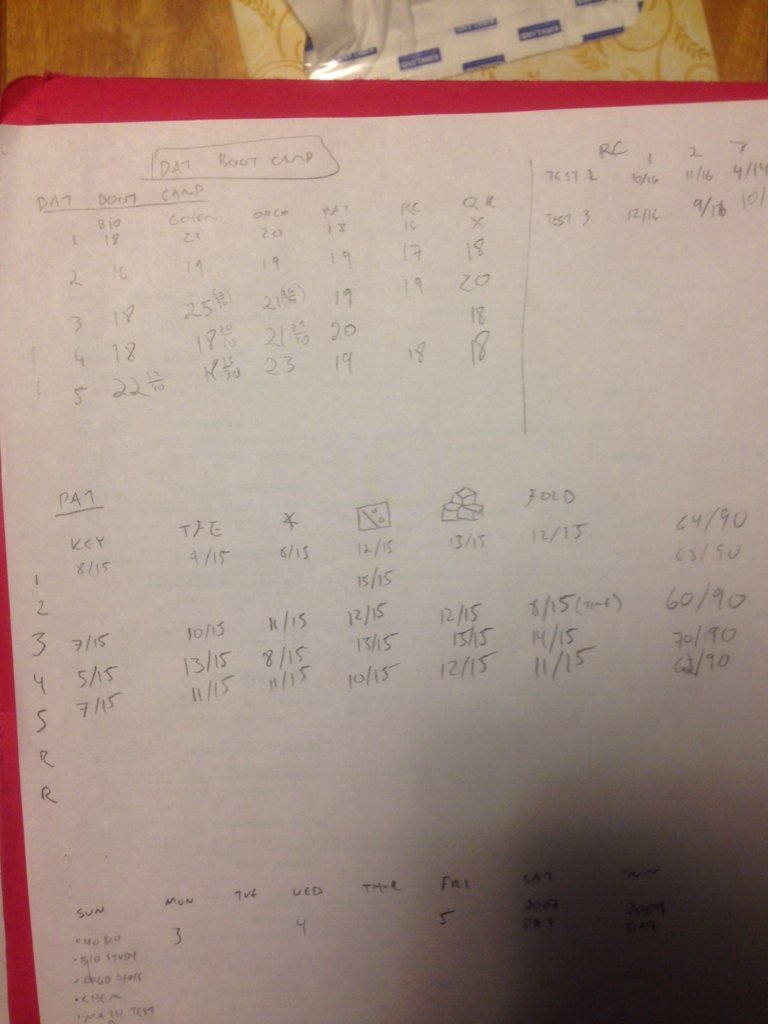 KIRKLAND
KIRKLAND
KIRKLAND
KIRKLAND
DAT BOOT CAMP
DAT BOOT CAMP
RC 1 2 3
TEST 2 10/16 11/16 4/14
TEST 3 12/16 9/16 10/
BIO GCHEM OCHO PAT RC QR
1 18 21 20 18 16 X
2 16 19 19 19 17 18
3 18 25 21 19 19 20
4 18 18 21 20 18
5 22 18 23 19 18 18
PAT
KEY TFE FOLD
1 8/15 9/15 8/15 12/15 13/15 12/15 64/90
2 15/15 63/90
3 7/15 10/15 11/15 12/15 12/15 8/15 (TIME) 60/90
4 5/15 13/15 8/15 13/15 15/15 14/15 70/90
5 7/15 11/15 11/15 10/15 12/15 11/15 62/90
R
R
SUN MON TUE WED THUR FRI SAT SUN
3 4 5 2007 DAT 2009 DAT
• 40 BIO
• BIO STUDY
• CHEM
• MATH TEST